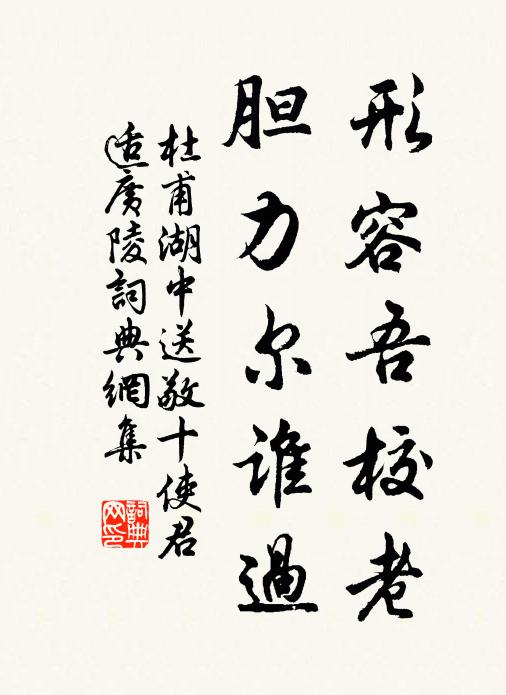 形容吾校老
胆力尔谁過
杜甫湖中送敬十使君
适廣陵詞典網集
詞典
网印